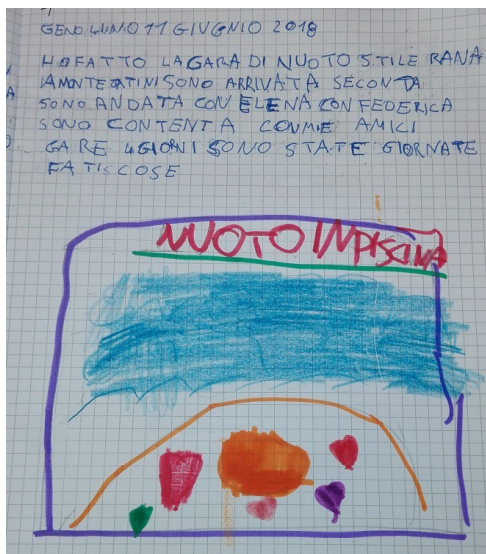 GENOLUNO 11 GIUGNIO 2018
HOFATTO LAGARA DI NUOTO STILE RANA
IAMONTECATINI SONO ARRIVATA SECONDA
SONO ANDATA CON ELENA CON FEDERICA
SONO CONTENTA CONMIE AMICI
GARE 4GIORNI SONO STATE GIORNATE
FATISCOSE
NUOTO INPISCINA